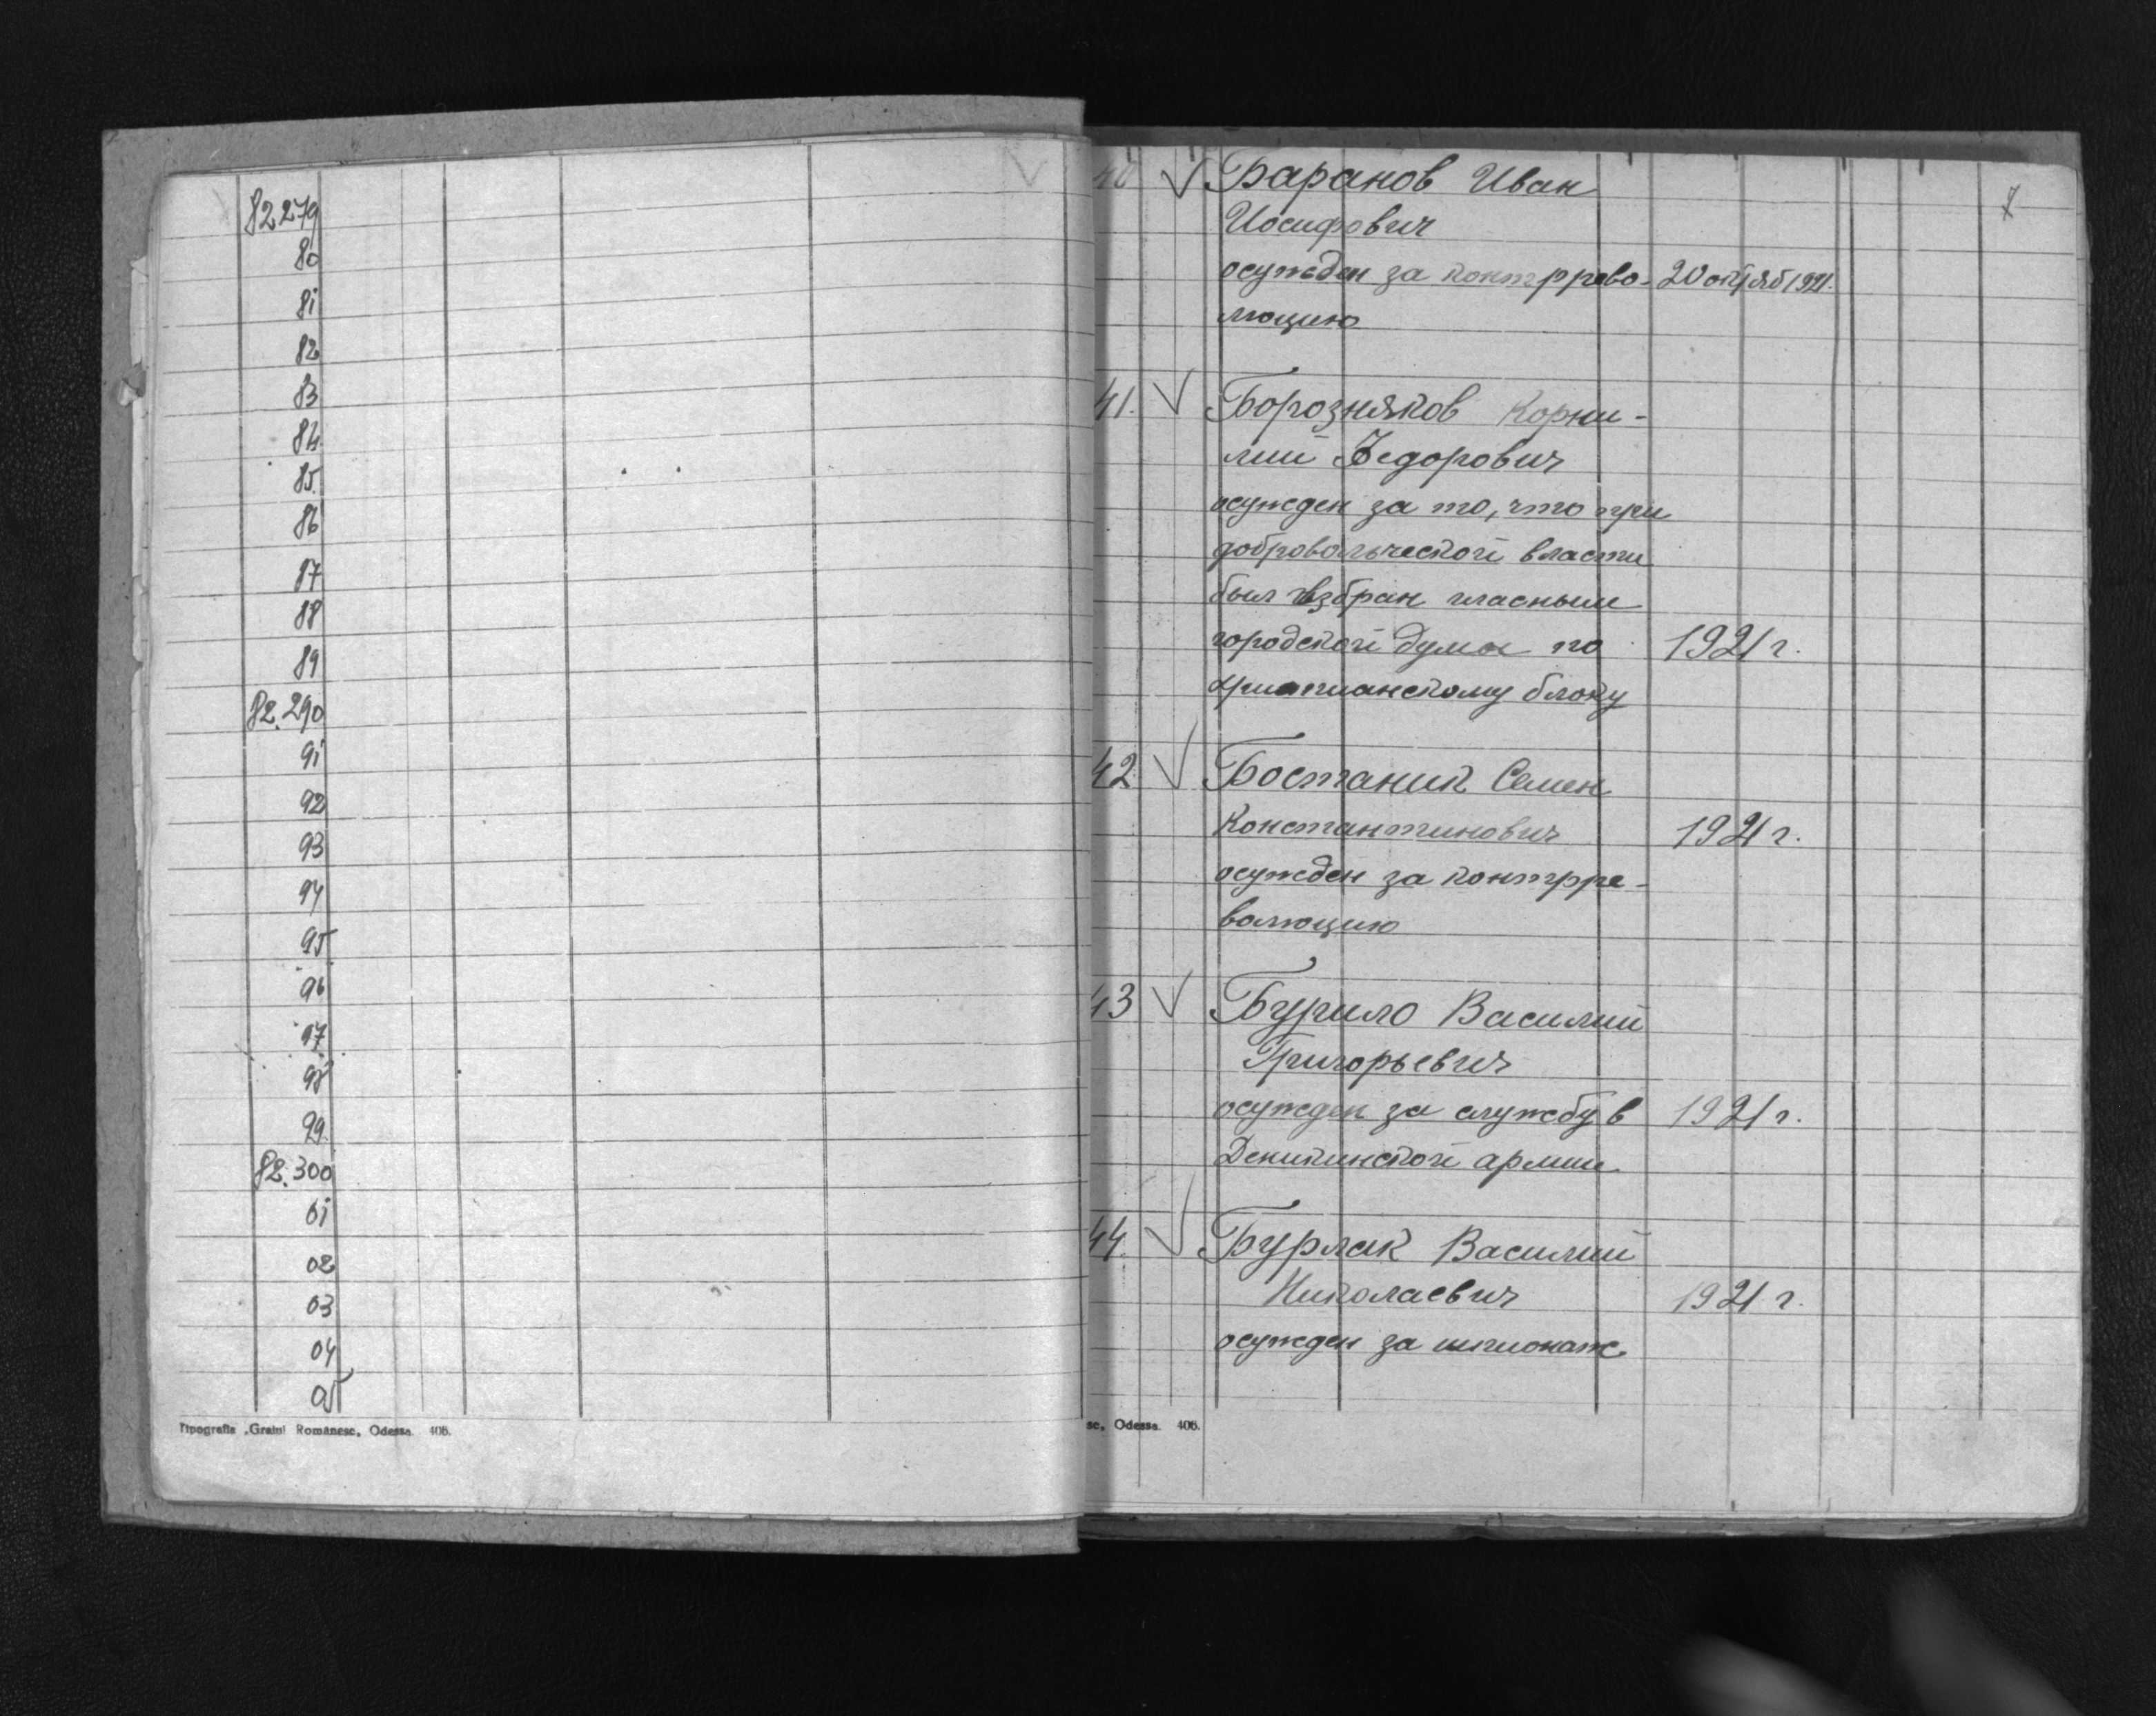 82279
80
81
82
83
84
85
86
87
88
89
82.290
91
92
93
94
95
96
97
98
99
82.300
01
02
03
04
05
Tipografia „Graiul Românesc„ Odessa. 406.
40 Баранов Иван
Иосифович
осужден за контррево- 20 октяб 1921.
люцию
41. Борозняков Корни-
лий Федорович
осужден за то, что при
добровольческой власти
был избран гласным
городской думы по 1921 г.
христианскому блоку
42 Бостаник Семен
Константинович 1921 г.
осужден за контрре-
волюцию
43 Бурило Василий
Григорьевич
осужден за службу в 1921 г.
Деникинской армии
44. Бурлак Василий
Николаевич 1921 г.
осужден за шпионаж
sc„ Odessa. 406.